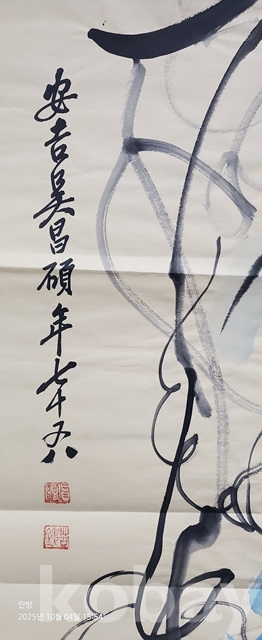 安吉吳昌碩年七十又八
안방
2025년 10월 04일
kobay